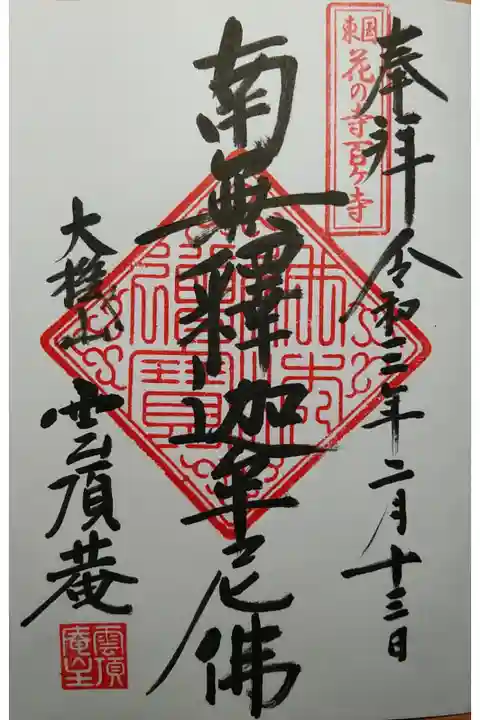 東国
花の寺百ヶ寺
奉拝 令和三年二月十三日
南無釋迦牟尼佛
大機山 雲頂菴
雲頂
庵主